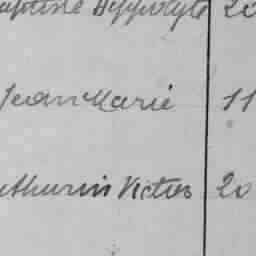 aptiste Hippolyte 20
Jean Marie 11
athurin Victor 20